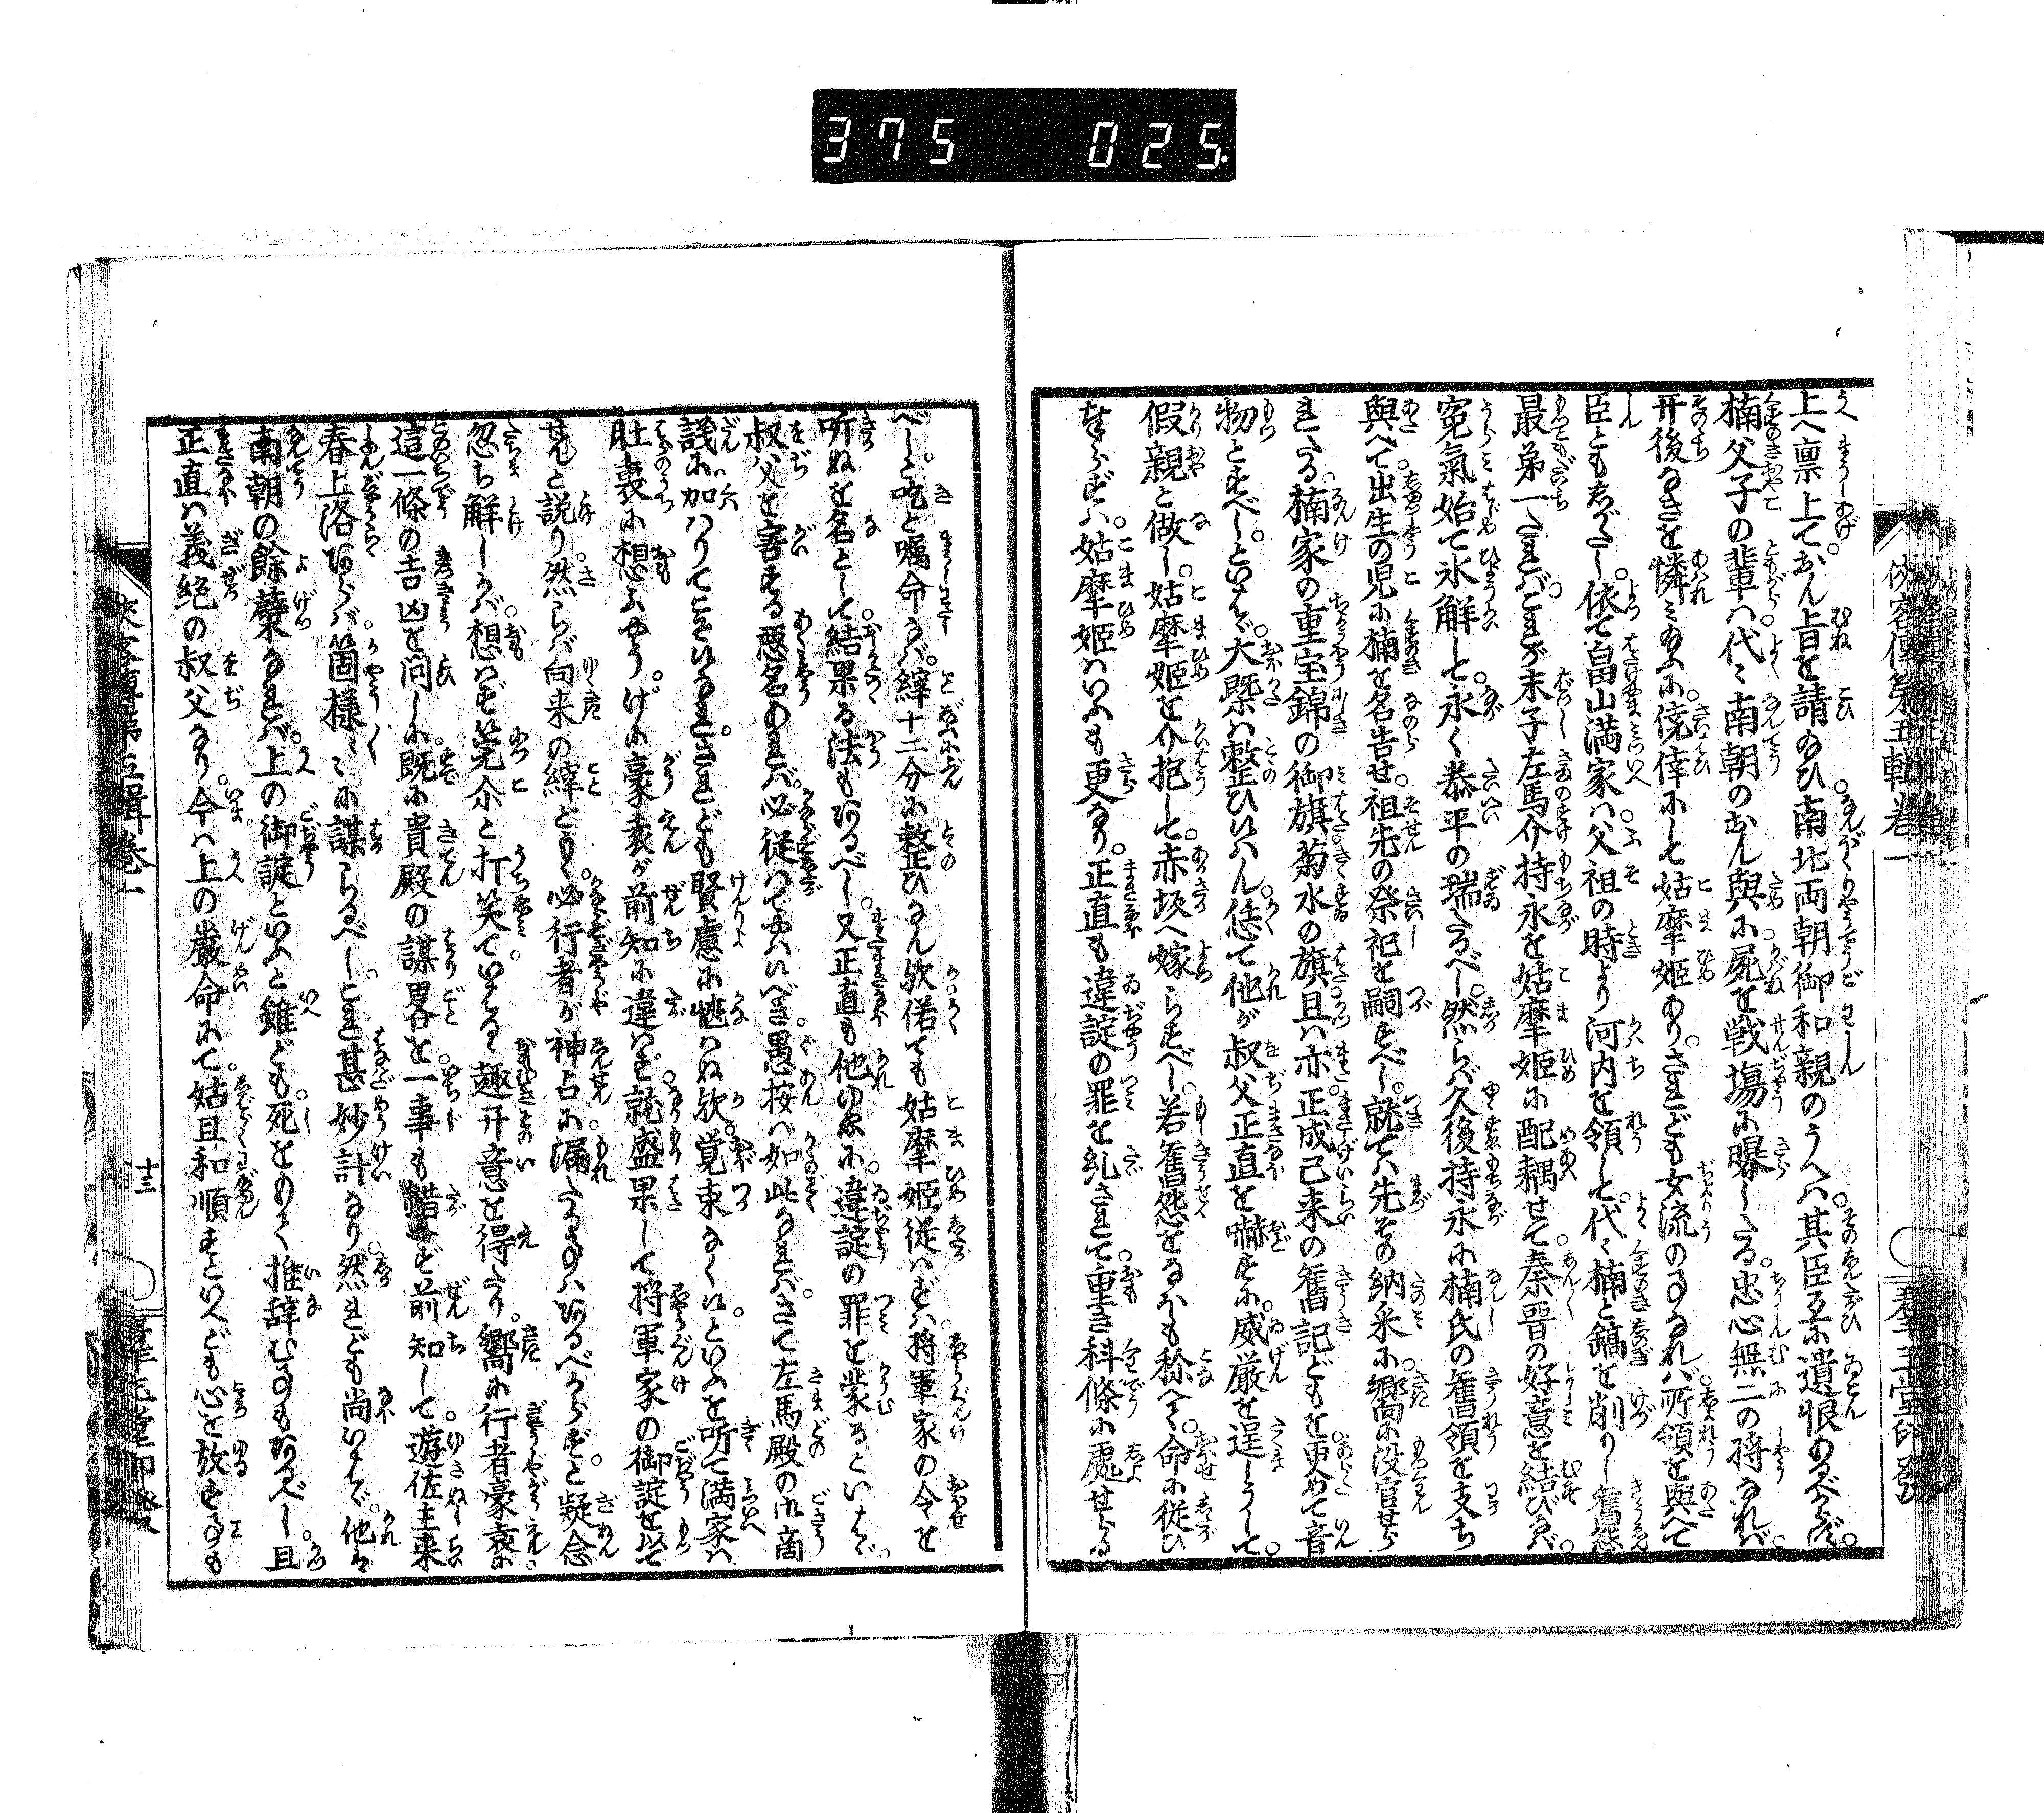 375 025
俠客傳第五輯卷一
上へ禀上ておん旨を請ゐひ。南北両朝御和親のうへハ。其臣子亦遺恨あるべからず。
楠父子の輩ハ。代〻南朝のおん與に。屍を戦場に曝したる。忠心無二の將なれバ
其後なきを憐ミ給ふに。僥倖にして姑摩姫あり。されども女流の事なれバ。所領を與へて
臣ともしがたし。依て畠山満家ハ。父祖の時より河内を領して。代〻楠と鎬を削りし舊怨
最第一たれバ。これが末子左馬介持永を。姑摩姫に配耦せて。秦晋の好意を結びなバ。
寃氣始て氷解して。永く泰平の瑞たるべし。然らバ久後持永に楠氏の舊領を支ち
與へて。出生の児に楠を名告せ。祖先の祭祀を嗣すべし。就てハ先その納采に。嚮に没官せら
れたる。楠家の重宝錦の御旗。菊水の旗。且ハ亦。正成已来の舊記どもを。更めて音
物とすべしといはゞ。大槩ハ整ひいはん。恁て他が叔父正直を嚇すに。威厳を逞うして。
假親と做し。姑摩姫を介抱して。赤坂へ嫁らすべし。若舊怨をなほも稱へて。命に從ひ
まつらずハ。姑摩姫ハいふも更なり。正直も違詫の罪を糺されて。重き科條に處せらる
べしと。吃と嘱命なバ。縡十二分に整ひなん歟。偌ても姑摩姫從ハずハ。將軍家の令を
听ぬを名として。結果る法もあるべし。又正直も他ゆゑに。違諚の罪を蒙るといはゞ。
叔父を害する悪名あれバ。必從ハでやハいべき。愚按ハ如此なれバ。さて左馬殿の
議に加ハりてこそいなれ。されども賢慮に愜ハぬ歟。覚束なくい。といふを听て満家ハ
肚裏に想ふやう。げに豪家が前知に違ハず。就盛果して將軍家の御諚を以て
せんと説り。然らバ向来の縡とも。必行者が神占に。漏たる事ハあるべからずと。疑念
忽ち解しかバ。想ハず莞尓と打笑て。いはるゝ趣其意を得たり。嚮に行者豪家に
這一條の吉凶を問しに。既に貴殿の謀畧を。一事も錯ハず前知して。遊佐主来
春上洛あらバ。箇様〻〻に謀らるべし。これ甚妙計なり。然れども尚いはゞ。他ハ
南朝の餘孽なれバ。上の御諚といふと雖ども。死をもて推辞む事もあるべし。且
正直ハ義絶の叔父なり。今ハ上の嚴命にて。姑且和順すといへども。心を放す事も
十三
群玉堂印發